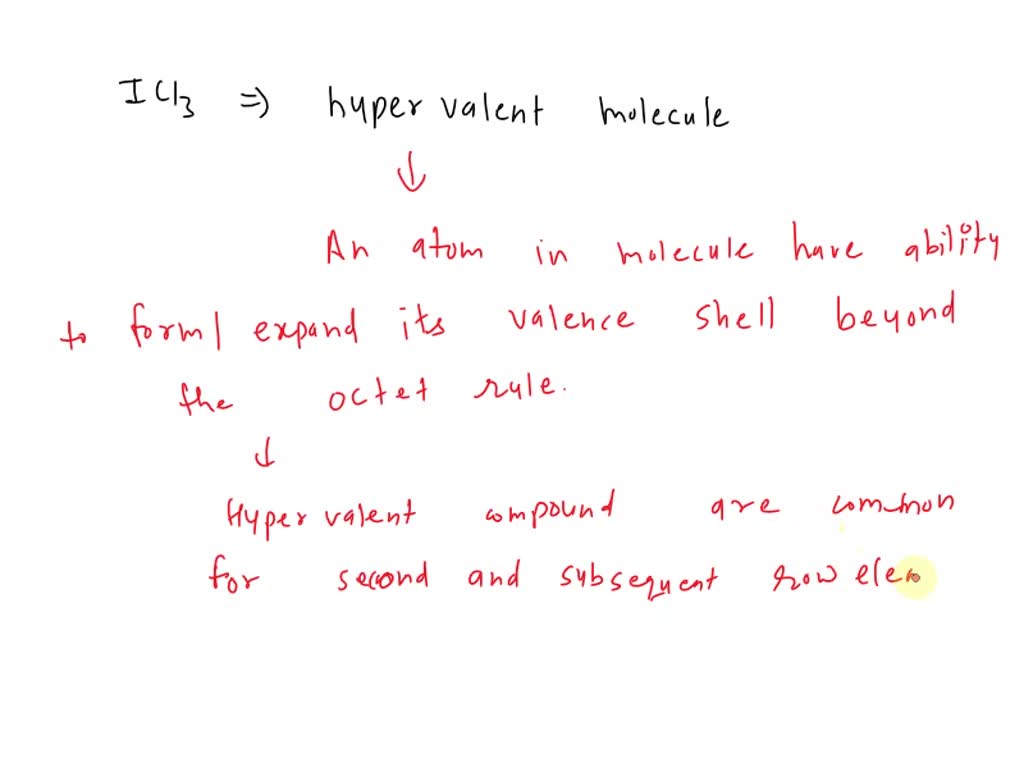 ICl3 => hypervalent molecule
↓
An atom in molecule have ability
to form/ expand its valence shell beyond
the octet rule.
↓
Hypervalent compound are common
for second and subsequent row elem